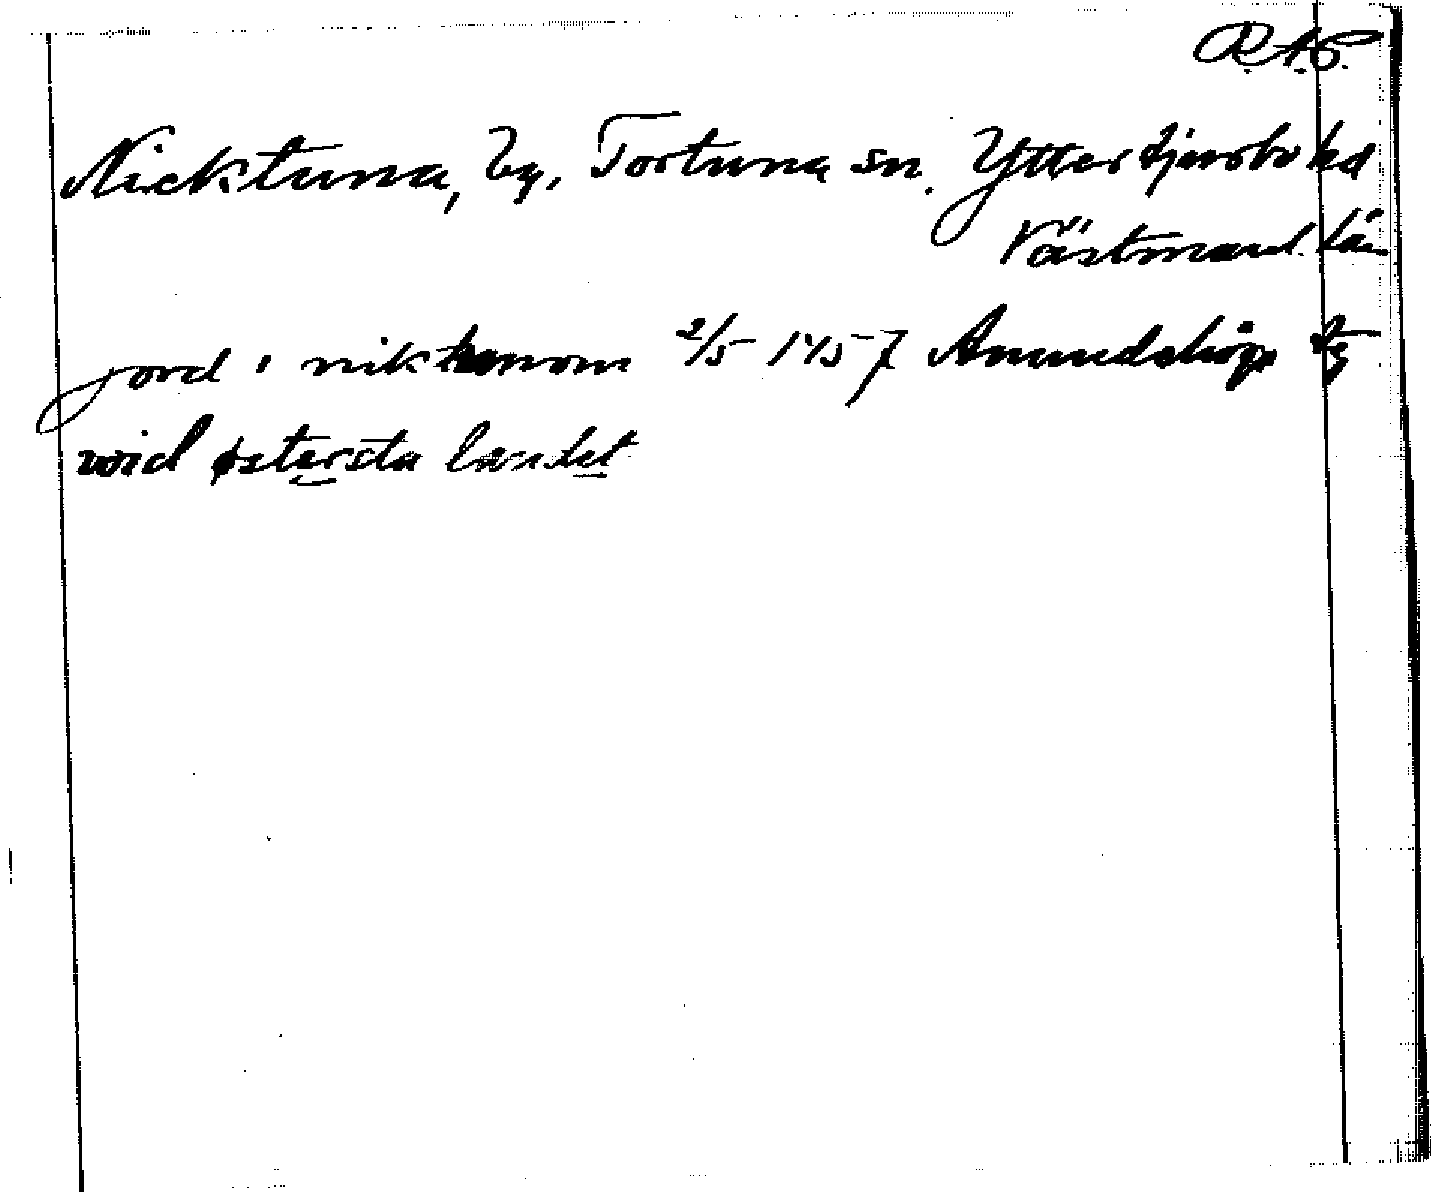 R.A.P.
Nicktuna, by, Tortuna sn. Yttertjurbo hd
Västmanl. län
jord i niktunom 2/5 1457 Anundshög tg
wid østersta landet